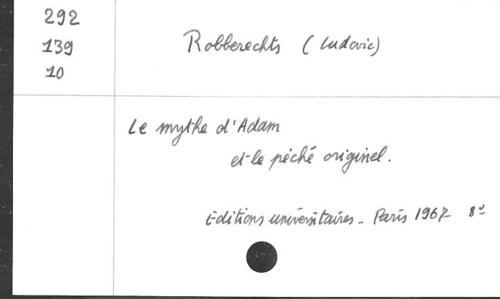 292
139
10
Robberechts (Ludovic)
Le mythe d'Adam
et le péché originel.
Editions universitaires - Paris 1967 8º